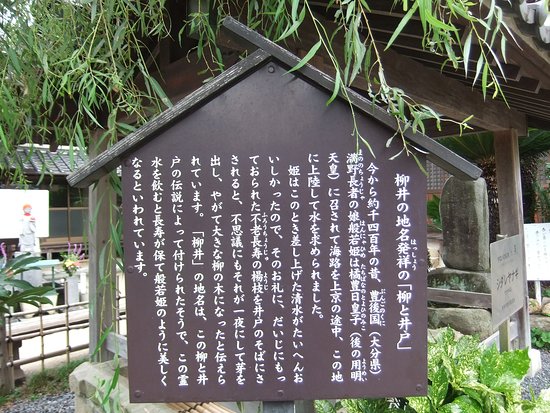 柳井の地名発祥の「柳と井戸」
はっしょう
今から約千四百年の昔、豊後国（大分県）
ぶんごのくに
満野長者の娘般若姫は橘豊日皇子（後の用明
天皇）に召されて海路を上京の途中、この地
に上陸して水を求められました。
姫はこのとき差し上げた清水がたいへんお
いしかったので、そのお礼に、だいじにもっ
ておられた不老長寿の楊枝を井戸のそばにさ
されると、不思議にもそれが一夜にして芽を
出し、やがて大きな柳の木になったと伝えら
れています。「柳井」の地名は、この柳と井
戸の伝説によって付けられたそうで、この霊
水を飲むと長寿が保て般若姫のように美しく
なるといわれています。
シダレヤナギ